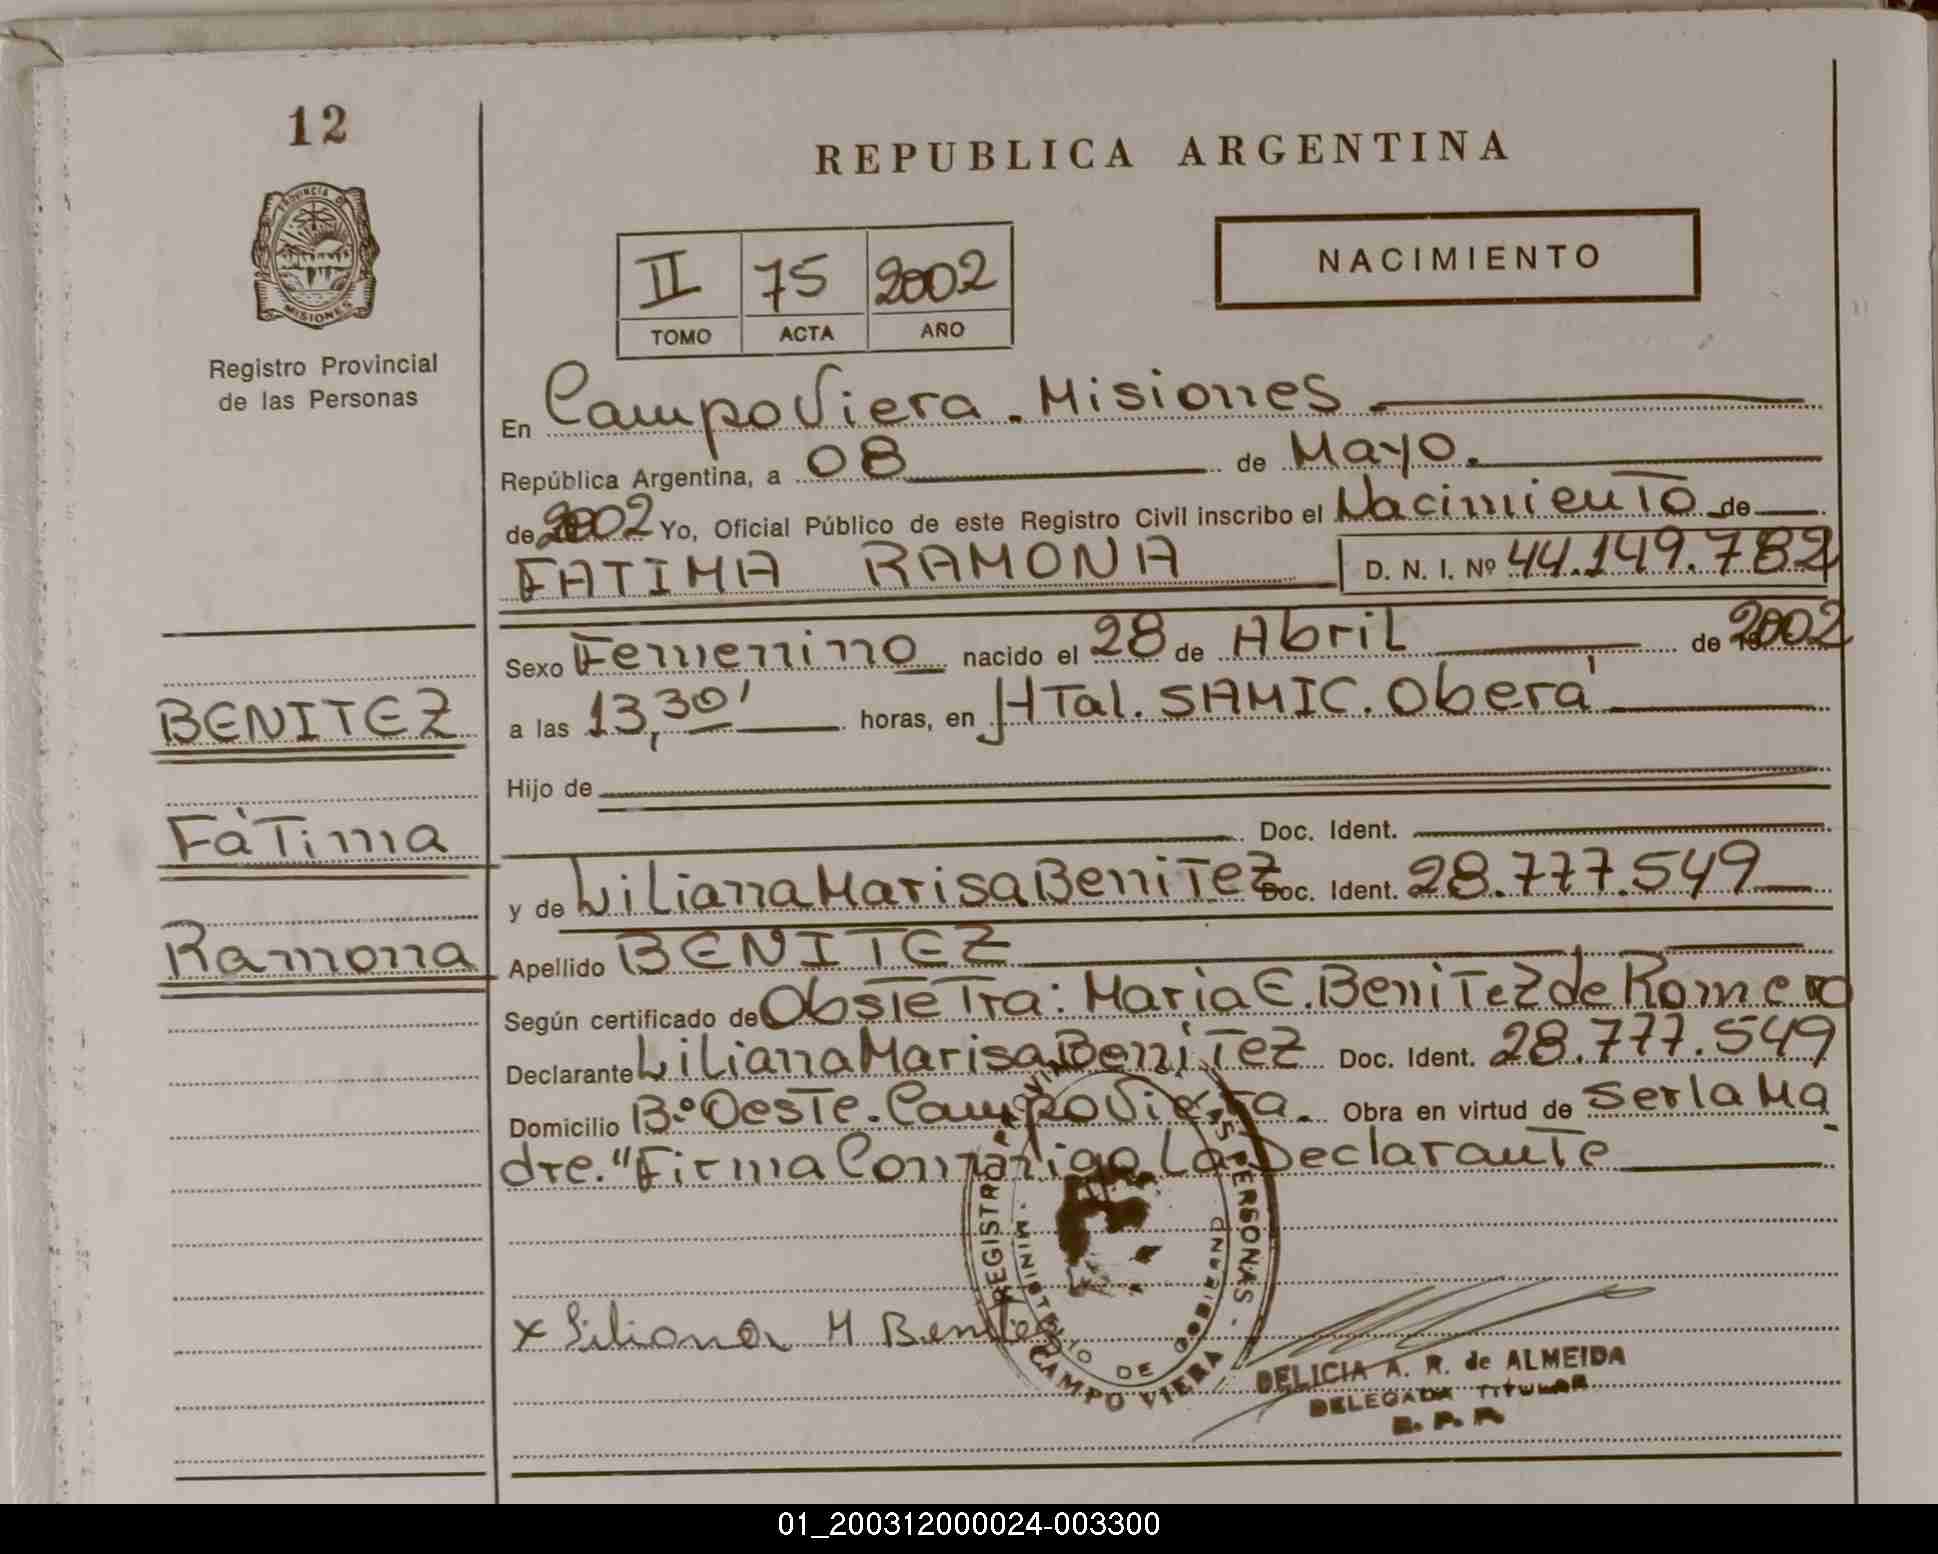 12
REPUBLICA ARGENTINA
PROVINCIA DE
MISIONES
Registro Provincial
de las Personas
II 75 2002
TOMO ACTA AÑO
NACIMIENTO
En Campo Viera. Misiones
República Argentina, a 08 de Mayo.
de 2002 Yo, Oficial Público de este Registro Civil inscribo el Nacimiento de
FATIMA RAMONA D. N. I. Nº 44.149.782
Sexo Femenino nacido el 28 de Abril de 2002
BENITEZ
a las 13,30' horas, en HTal. SAMIC. Oberá
Hijo de
Fátima
Doc. Ident.
y de Liliana Marisa Benitez Doc. Ident. 28.777.549
Ramona
Apellido BENITEZ
Según certificado de Obstetra: Maria E. Benitez de Romero
Declarante Liliana Marisa Benitez Doc. Ident. 28.777.549
Domicilio Bº Oeste. Campo Viera. Obra en virtud de ser la Ma
dre. "Firma Conmigo La Declarante
REGISTRO PERSONAS -
MINISTERIO DE GOBIERNO
CAMPO VIERA
x Liliana M Benitez
DELICIA A. R. de ALMEIDA
DELEGADA TITULAR
R. P. P.
01_200312000024-003300